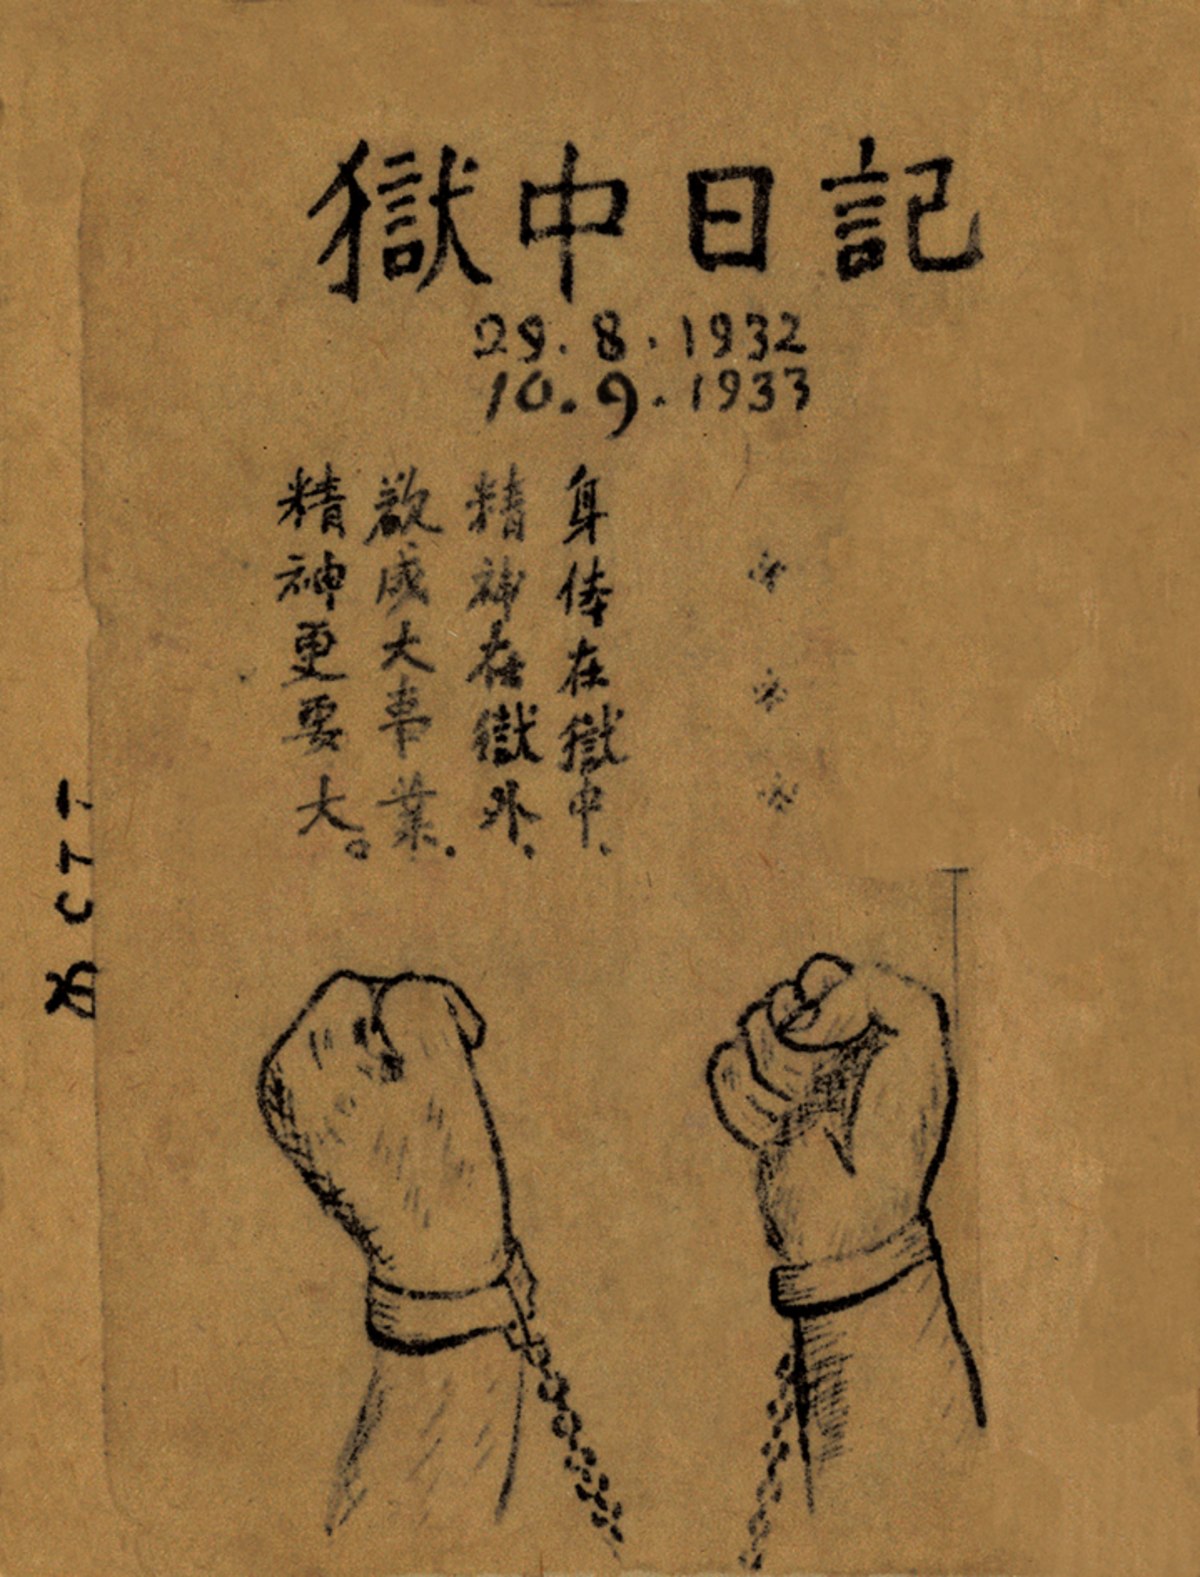 獄中日記
29.8.1932
10.9.1933
身体在獄中、
精神在獄外、
欲成大事業.
精神更要大。